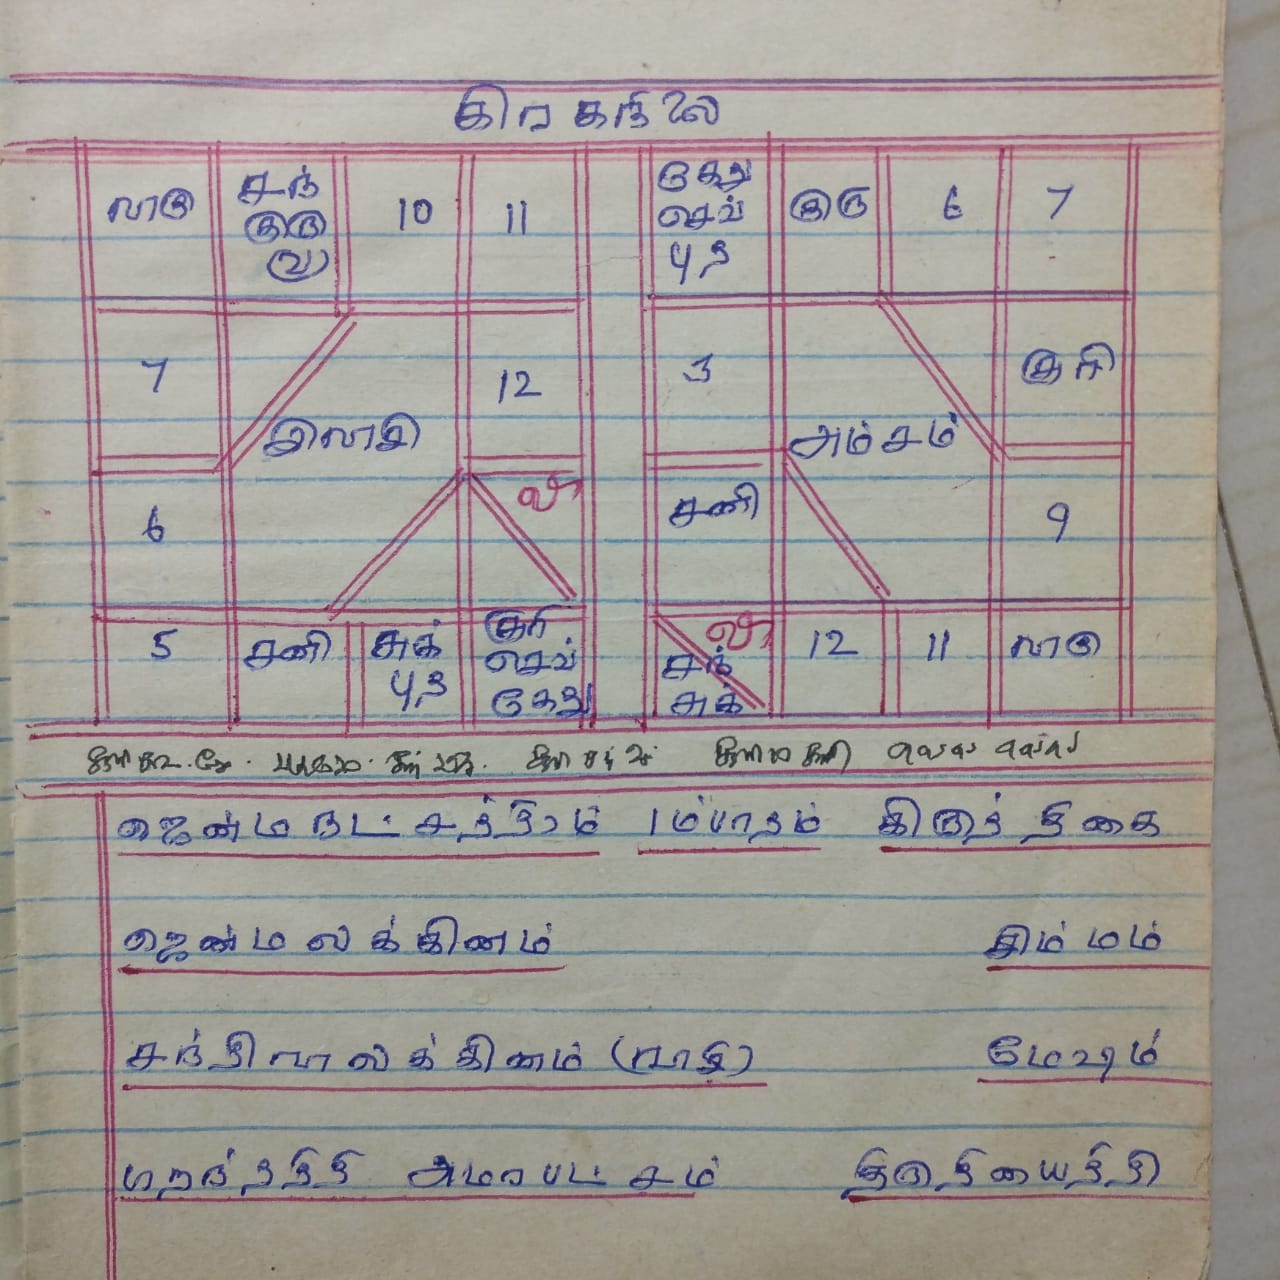 கிரகநிலை
ராகு சந் 10 11 கேது குரு 6 7
குரு செவ்
வ புத
7 12 3 சூரி
இராசி அம்சம்
6 ல சனி 9
5 சனி சுக் சூரி ல 12 11 ராகு
புத செவ் சந்
கேது சுக்
ஜென்ம நட்சத்திரம் 1ம்பாதம் கிருத்திகை
ஜென்ம லக்கினம் சிம்மம்
சந்திரா லக்கினம் (ராசி) மேஷம்
பிறந்ததிதி அமரபட்சம் திருதியைதிதி